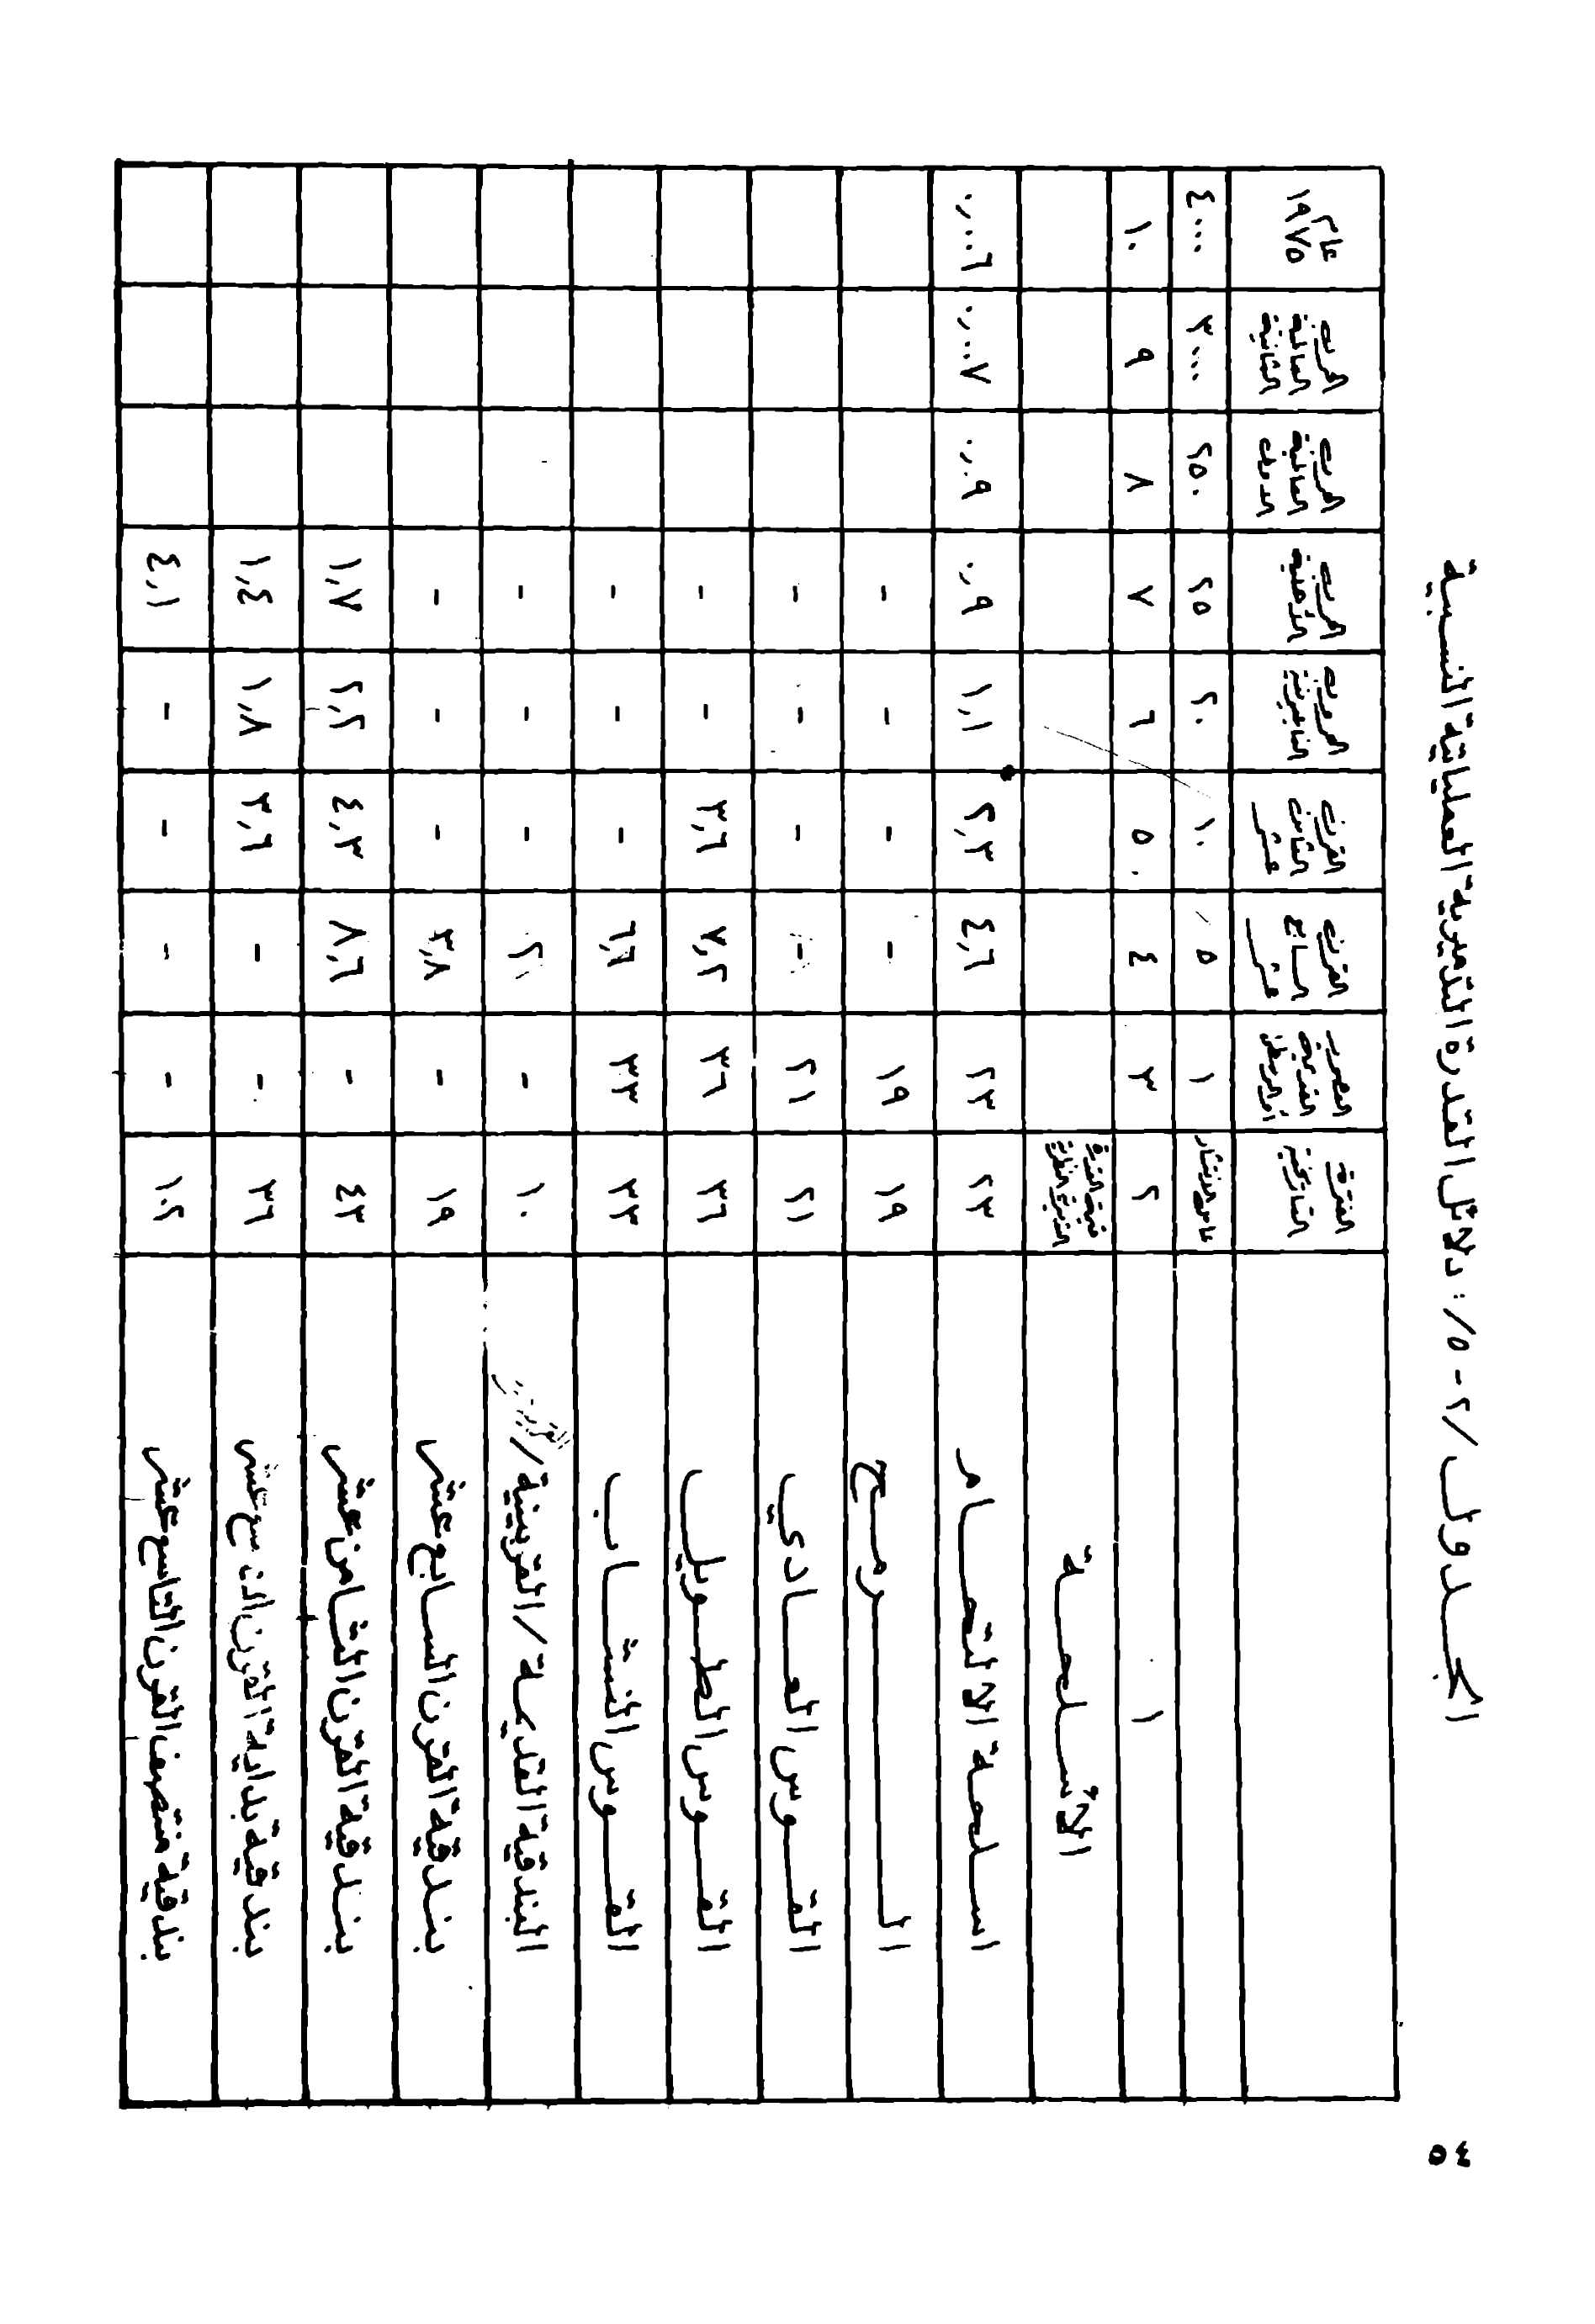 الجدول /٢ - ٥/: دلائل القدرة التدميرية العملياتية النسبية
الفترة التاريخية | العصور القديمة أو الوسطى | القرن السابع عشر | القرن الثامن عشر | الحروب النابليونية | الحرب الأهلية | الحرب العالمية الأولى | الحرب العالمية الثانية | عام ١٩٧٥
عامل الانتشار | ١ | ٥ | ١٠ | ٢٠ | ٢٥ | ٢٥٠ | ٣٠٠٠ | ٤٠٠٠
١ | ٢ | ٣ | ٤ | ٥ | ٦ | ٧ | ٨ | ٩ | ١٠
الأسلحة | القدرة التدميرية النظرية
اسلحة الالتحام | ٢٣ | ٢٣ | ٤,٦ | ٢,٣ | ١,١ | ٠,٩ | ٠,٠٩ | ٠,٠٠٧ | ٠,٠٠٦
الرمح | ١٩ | ١٩ | - | - | - | -
القوس العادي | ٢١ | ٢١ | - | - | - | -
القوس الطويل | ٣٦ | ٣٦ | ٧,٢ | ٣,٦ | - | -
القوس النشاب | ٣٣ | ٣٣ | ٦,٦ | - | - | -
البندقية القديمة /القربينية/ | ١٠ | - | ٢ | - | - | -
بندقية القرن السابع عشر | ١٩ | - | ٣,٨ | - | - | -
بندقية القرن الثامن عشر | ٤٣ | - | ٨,٦ | ٤,٣ | ٢,٢ | ١,٧
بندقية بداية القرن التاسع عشر | ٣٦ | - | - | ٣,٦ | ١,٨ | ١,٤
بندقية منتصف القرن التاسع عشر | ١٠٢ | - | - | - | - | ٤,١
٥٤